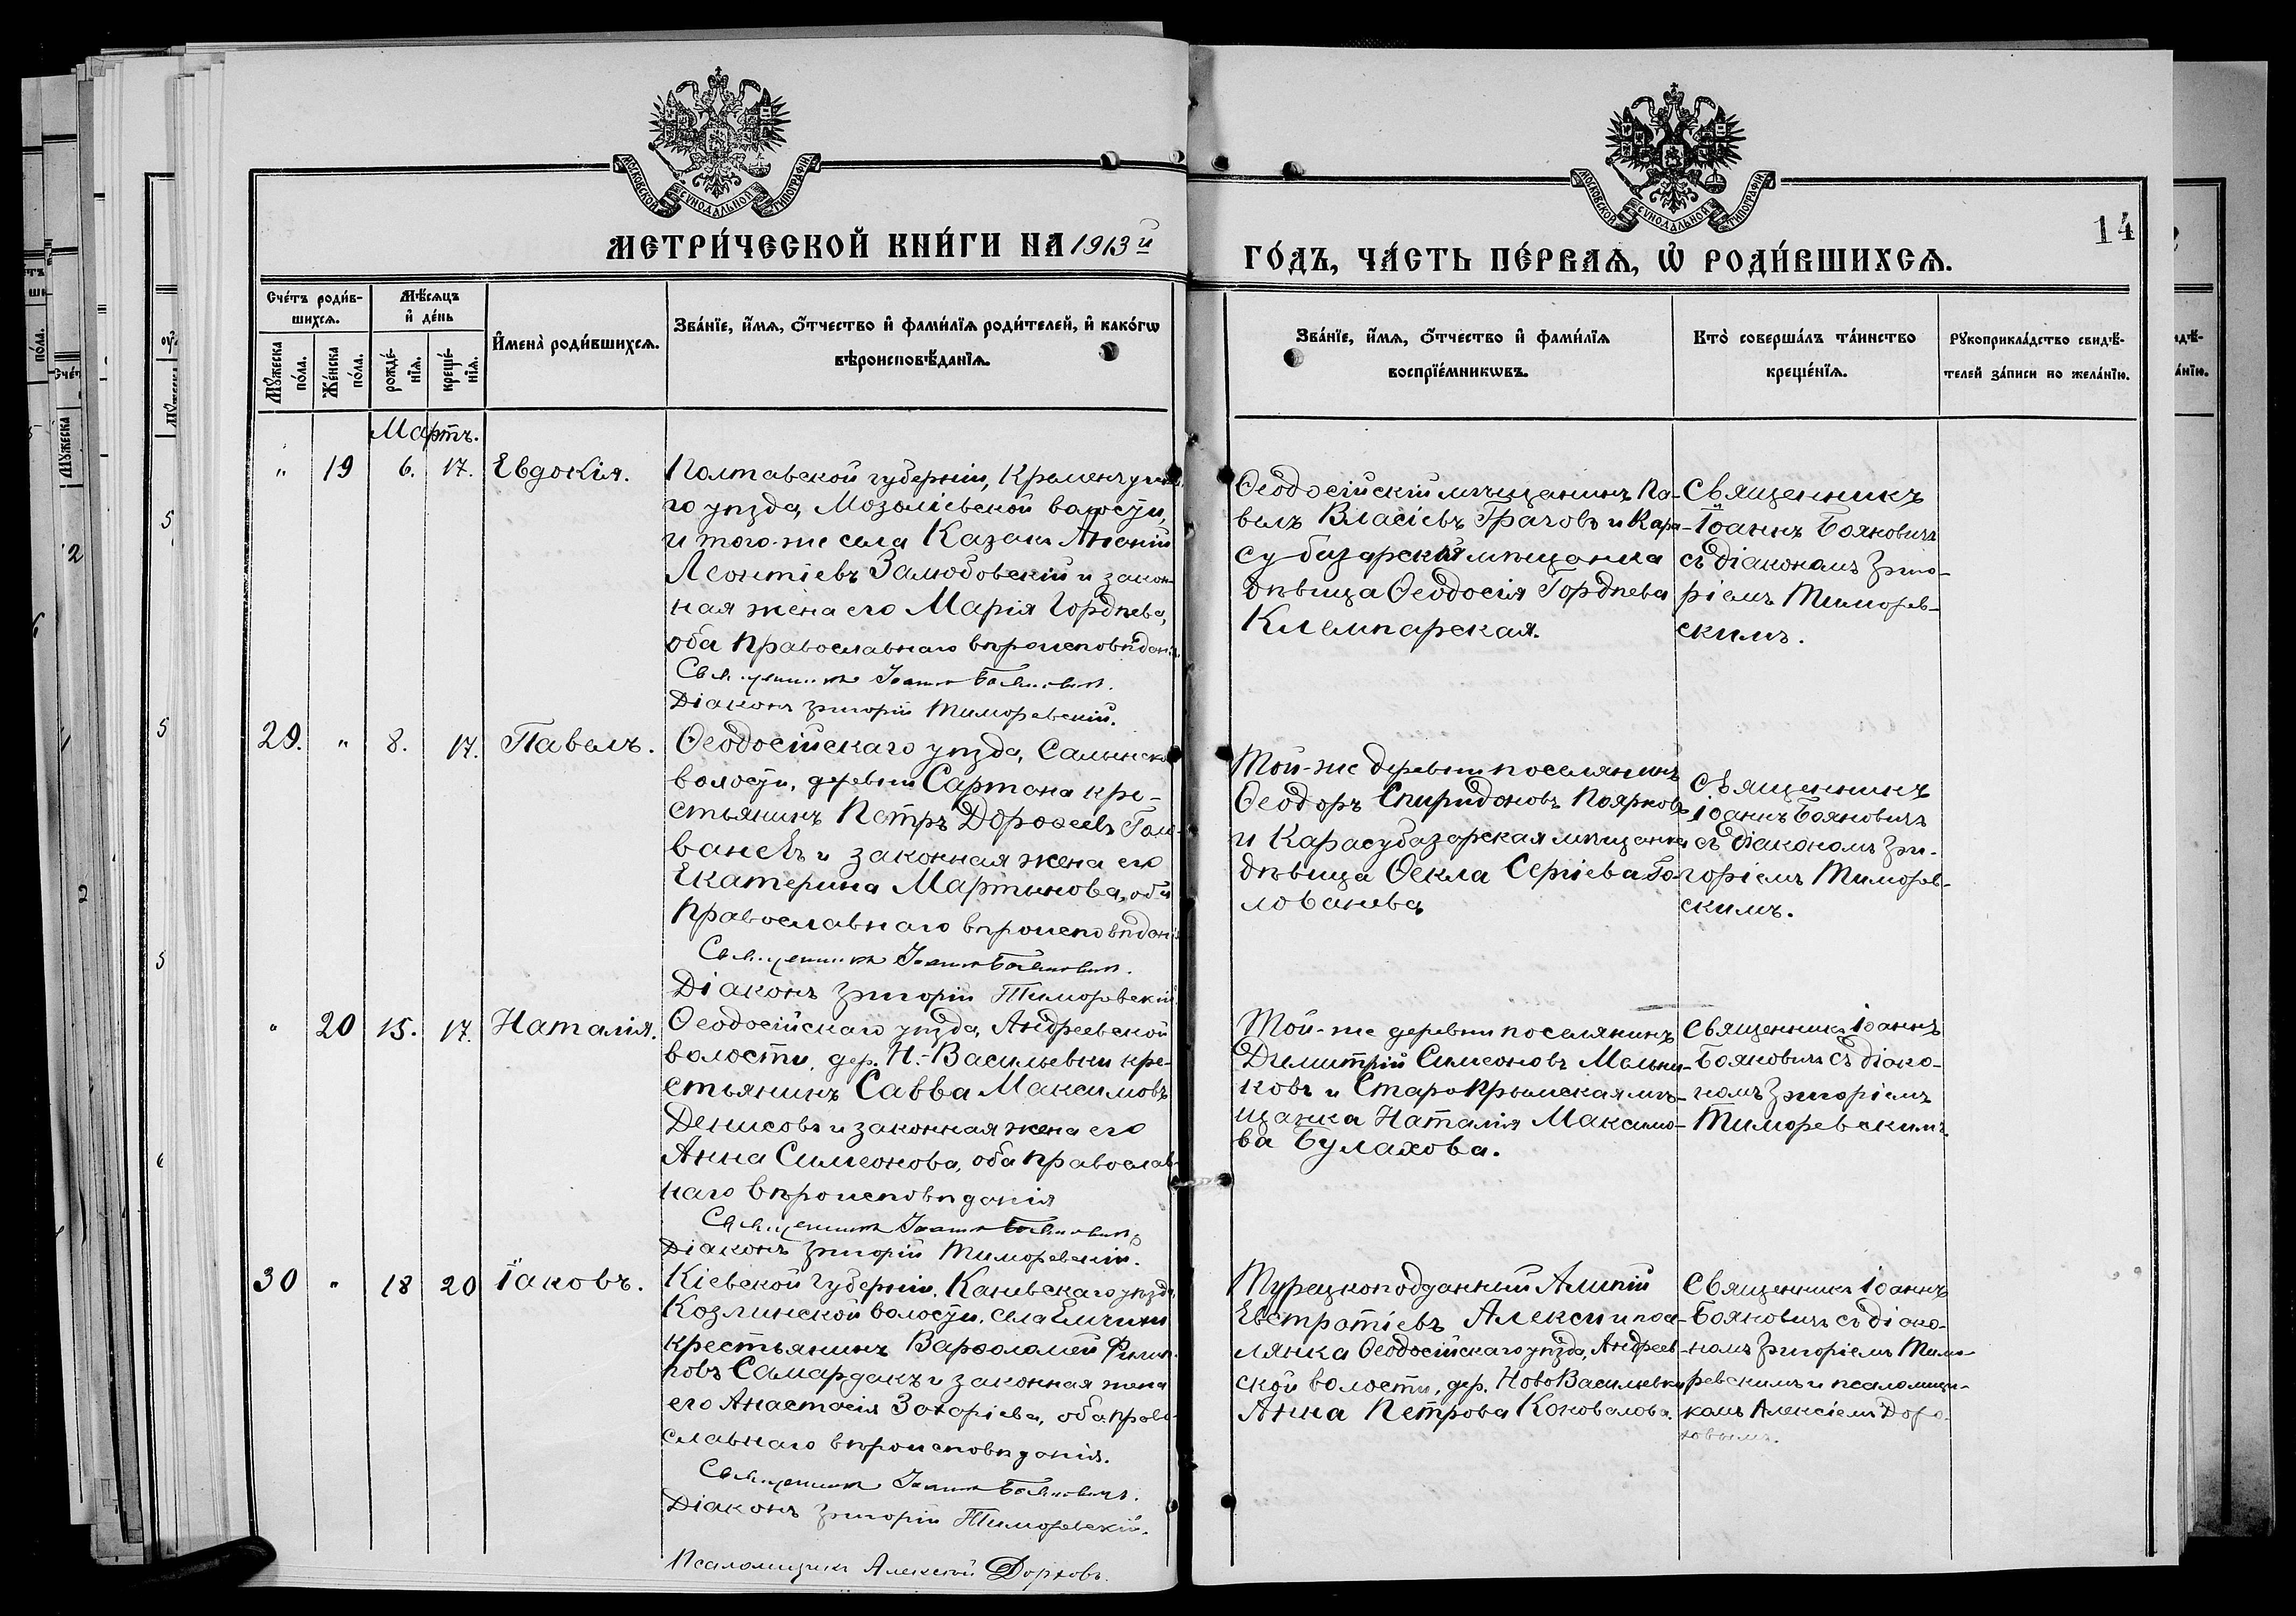 МОСКОВСКОЙ СѴНОДАЛЬНОЙ ТИПОГРАФІИ
МОСКОВСКОЙ СѴНОДАЛЬНОЙ ТИПОГРАФІИ
14
МЕТРИ́ЧЕСКОЙ КНИ́ГИ НА 1913й
ГО́ДЪ, ЧА́СТЬ ПЕ́РВАѦ, Ѽ РОДИ́ВШИХСѦ.
Сче́тъ роди́в-
шихсѧ.
Мꙋ́жеска по́ла.
Же́нска по́ла.
Мѣ́сѧцъ
и҆ де́нь
рожде́-
нїѧ.
креще́-
нїѧ.
И҆мена̀ роди́вшихсѧ.
Зва́нїе, и҆́мѧ, ѻ҆́тчество и҆ фамѝлїѧ роди́телей, и҆ како́гѡ
вѣроисповѣ́данїѧ.
Зва́нїе, и҆́мѧ, ѻ҆́тчество и҆ фамѝлїѧ
воспрїе́мникѡвъ.
Кто̀ соверша́лъ та́инство
креще́нїѧ.
Рꙋкоприкла́дство свидѣ́-
телей за́писи по жела́нїю.
Мартъ.
" 19 6. 17. Евдокія.
Полтавской губерніи, Кременчугска
го уѣзда, Мозоліевской волости,
и того-же села Казакъ Ананій
Леонтіевъ Залюбовскій и закон-
ная жена его Марія Гордѣева,
оба православнаго вѣроисповѣданія.
Священникъ Іоаннъ Бояновичъ.
Діаконъ Григорій Тиморевскій.
Ѳеодосійскій мѣщанинъ Па-
велъ Власіевъ Грачовъ и Кара-
субазарская мѣщанка
дѣвица Ѳеодосія Гордѣева
Священникъ
Іоаннъ Бояновичъ
съ діакономъ Григо-
ріемъ Тиморев-
скимъ.
29. " 8. 17. Павелъ.
Ѳеодосійскаго уѣзда, Салынской
волости, деревни Сартана кре-
стьянинъ Петръ Дороѳеевъ Голо-
ваневъ и законная жена его
Екатерина Мартынова, оба
православнаго вѣроисповѣданія
Священникъ Іоаннъ Бояновичъ.
Діаконъ Григорій Тиморевскій.
Той-же деревни поселянинъ
Ѳеодоръ Спиридоновъ Поярковъ
и Карасубазарская мѣщанка
дѣвица Ѳекла Сергіева Го-
лованева
Священникъ
Іоаннъ Бояновичъ
съ діакономъ Гри-
горіемъ Тиморев-
скимъ.
" 20 15. 17. Наталія.
Ѳеодосійскаго уѣзда, Андреевской
волости, дер. Н.-Васильевки кре-
стьянинъ Савва Максимовъ
Денисовъ и законная жена его
Анна Симеонова, оба православ-
наго вѣроисповѣданія
Священникъ Іоаннъ Бояновичъ.
Діаконъ Григорій Тиморевскій.
Той-же деревни поселянинъ
Димитрій Симеоновъ Мельни-
ковъ и Старокрымская мѣ-
щанка Наталія Максимо-
ва Булахова.
Священникъ Іоаннъ
Бояновичъ съ діако-
номъ Григоріемъ
Тиморевскимъ.
30 " 18 20 Іаковъ.
Кіевской губерніи, Каневскаго уѣзда,
Козлинской волости, села Емчихи
крестьянинъ Варѳоломей Филип-
повъ Самардакъ и законная жена
его Анастасія Захаріева, оба право-
славнаго вѣроисповѣданія.
Священникъ Іоаннъ Бояновичъ.
Діаконъ Григорій Тиморевскій.
Псаломщикъ Алексій Дорховъ.
Турецкоподданный Алипій
Евстратіевъ Алекси и посе-
лянка Ѳеодосійскаго уѣзда, Андреев-
ской волости, дер. НовоВасильевки
Анна Петрова Коновалова.
Священникъ Іоаннъ
Бояновичъ съ діако-
номъ Григоріемъ Тимо-
ревскимъ и псаломщи-
комъ Алексіемъ Доро-
ховымъ.